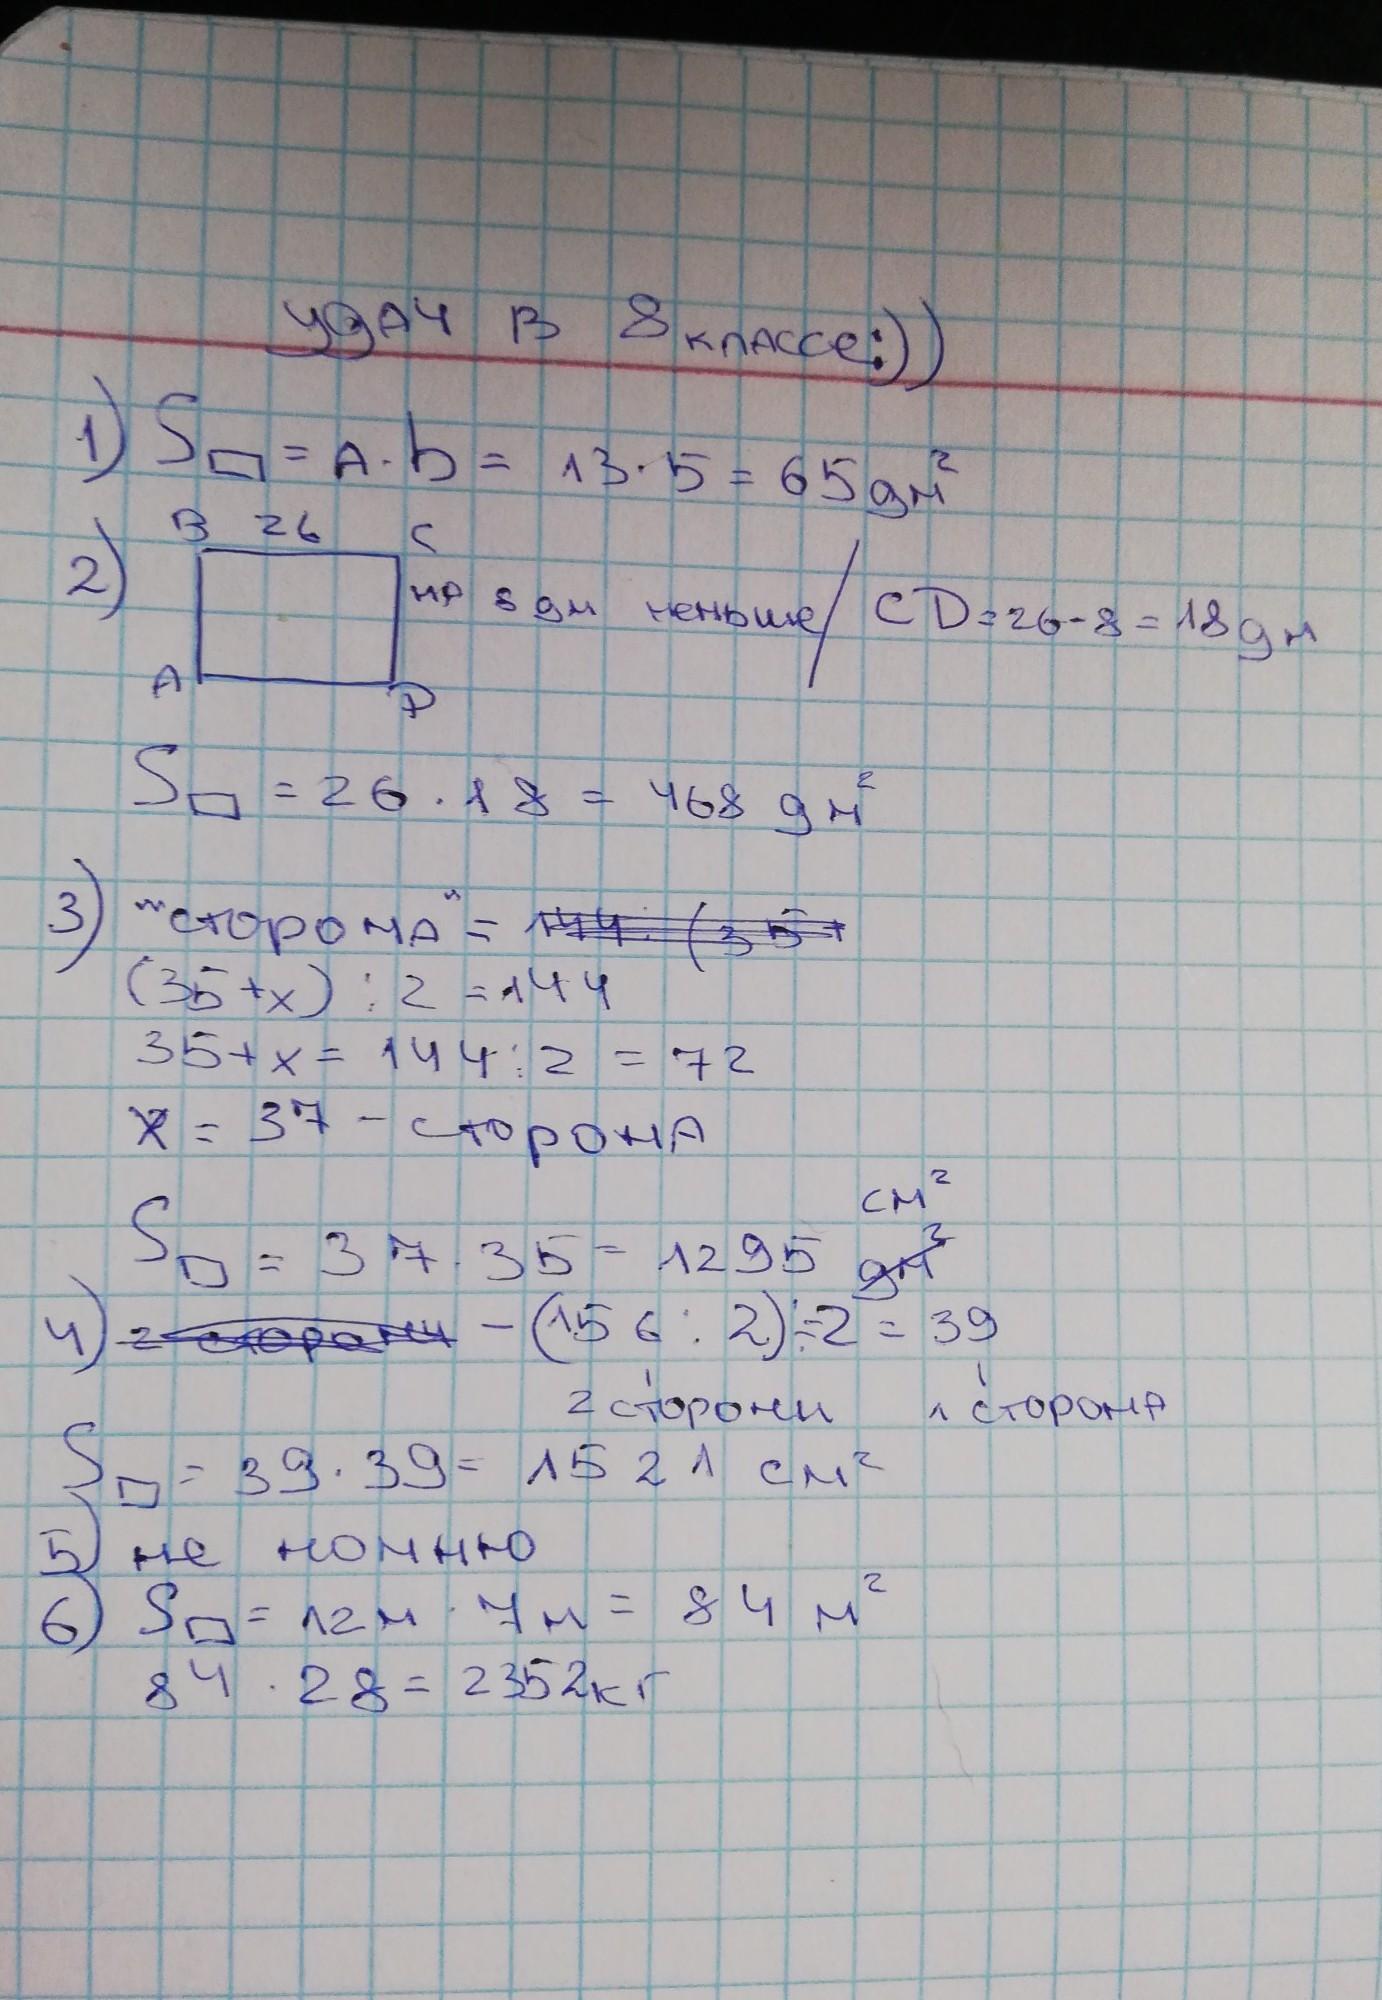 удАч в 8 классе:))
1) S▭ = A · b = 13 · 5 = 65 дм²
B 26 C
2) на 8 дм меньше / CD = 26 - 8 = 18 дм
A D
S▭ = 26 · 18 = 468 дм²
3) "сторона" = 144 : (35+
(35+x) : 2 = 144
35+x = 144 : 2 = 72
x = 37 - сторона
см²
S▭ = 37 · 35 = 1295 дм²
4) 2 стороны - (156 : 2) : 2 = 39
2 стороны 1 сторона
S▭ = 39 · 39 = 1521 см²
5) не помню
6) S▭ = 12м · 7м = 84 м²
84 · 28 = 2352кг